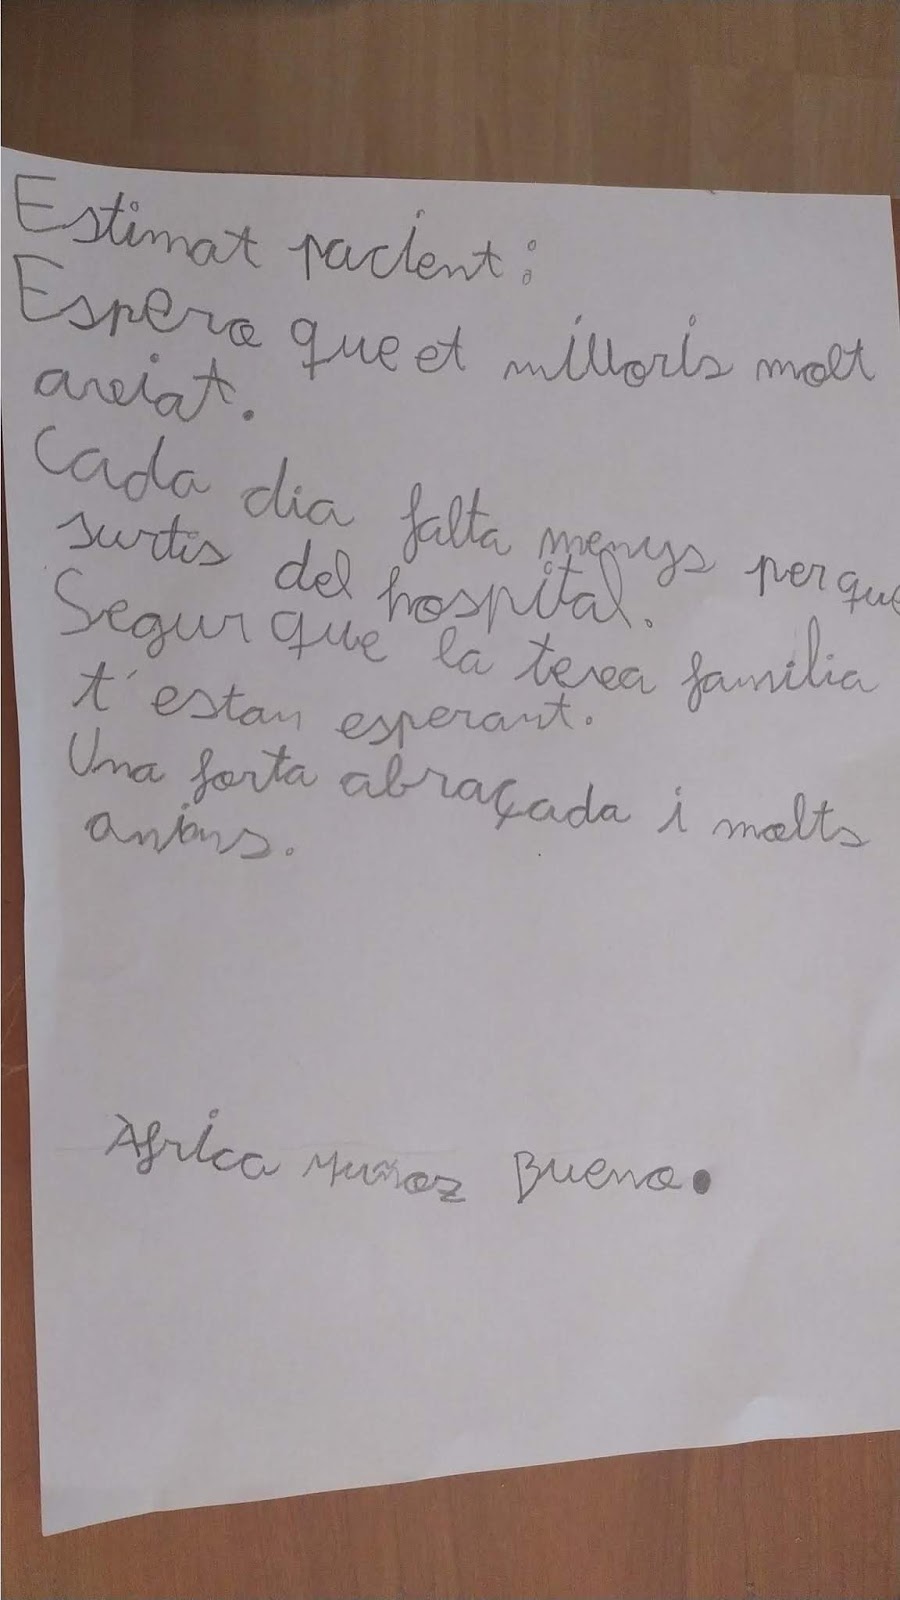 Estimat pacient:
Espero que et milloris molt
aviat.
Cada dia falta menys perque
surtis del hospital.
Segur que la teva família
t'estan esperant.
Una forta abraçada i molts
anims.
Àfrica Muñoz Bueno.